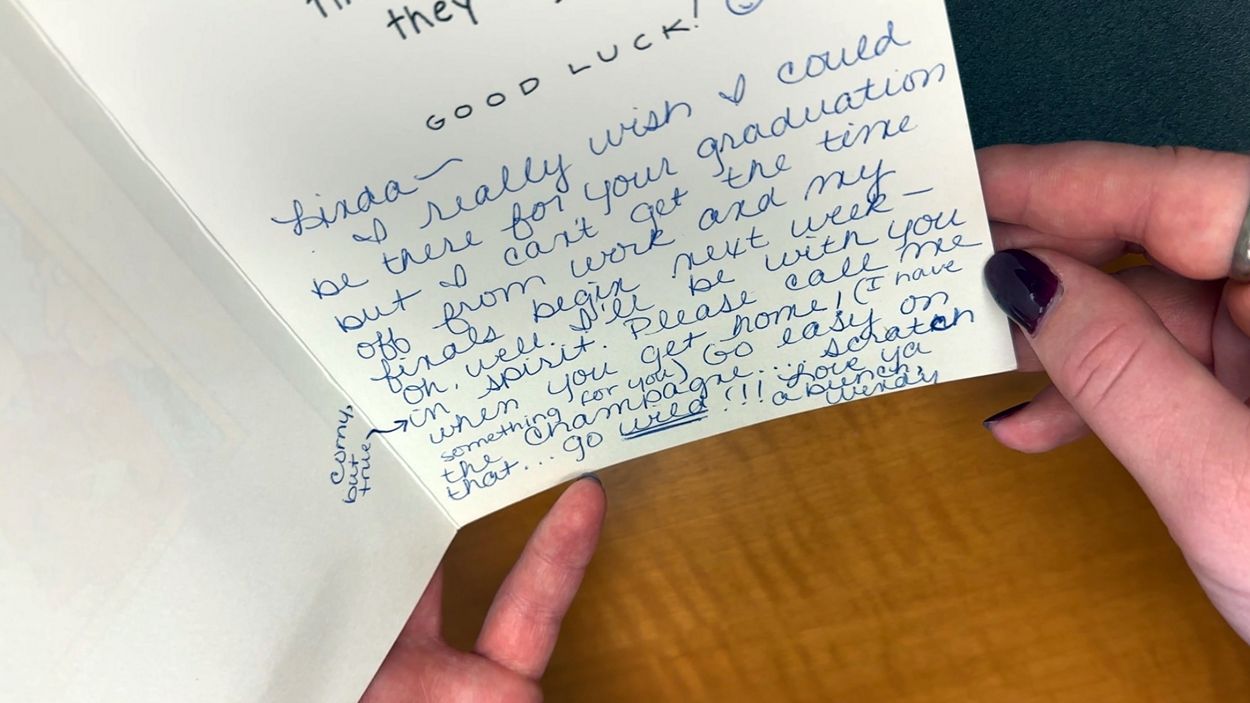 they
GOOD LUCK!
Linda—
I really wish I could
be there for your graduation
but I can't get the time
off from work and my
finals begin next week—
oh, well. I'll be with you
in spirit. Please call me
when you get home! (I have
something for you) Go easy on
the champagne... scratch
that... go wild!!! Love ya
a bunch,
Wendy
Corny,
but
true